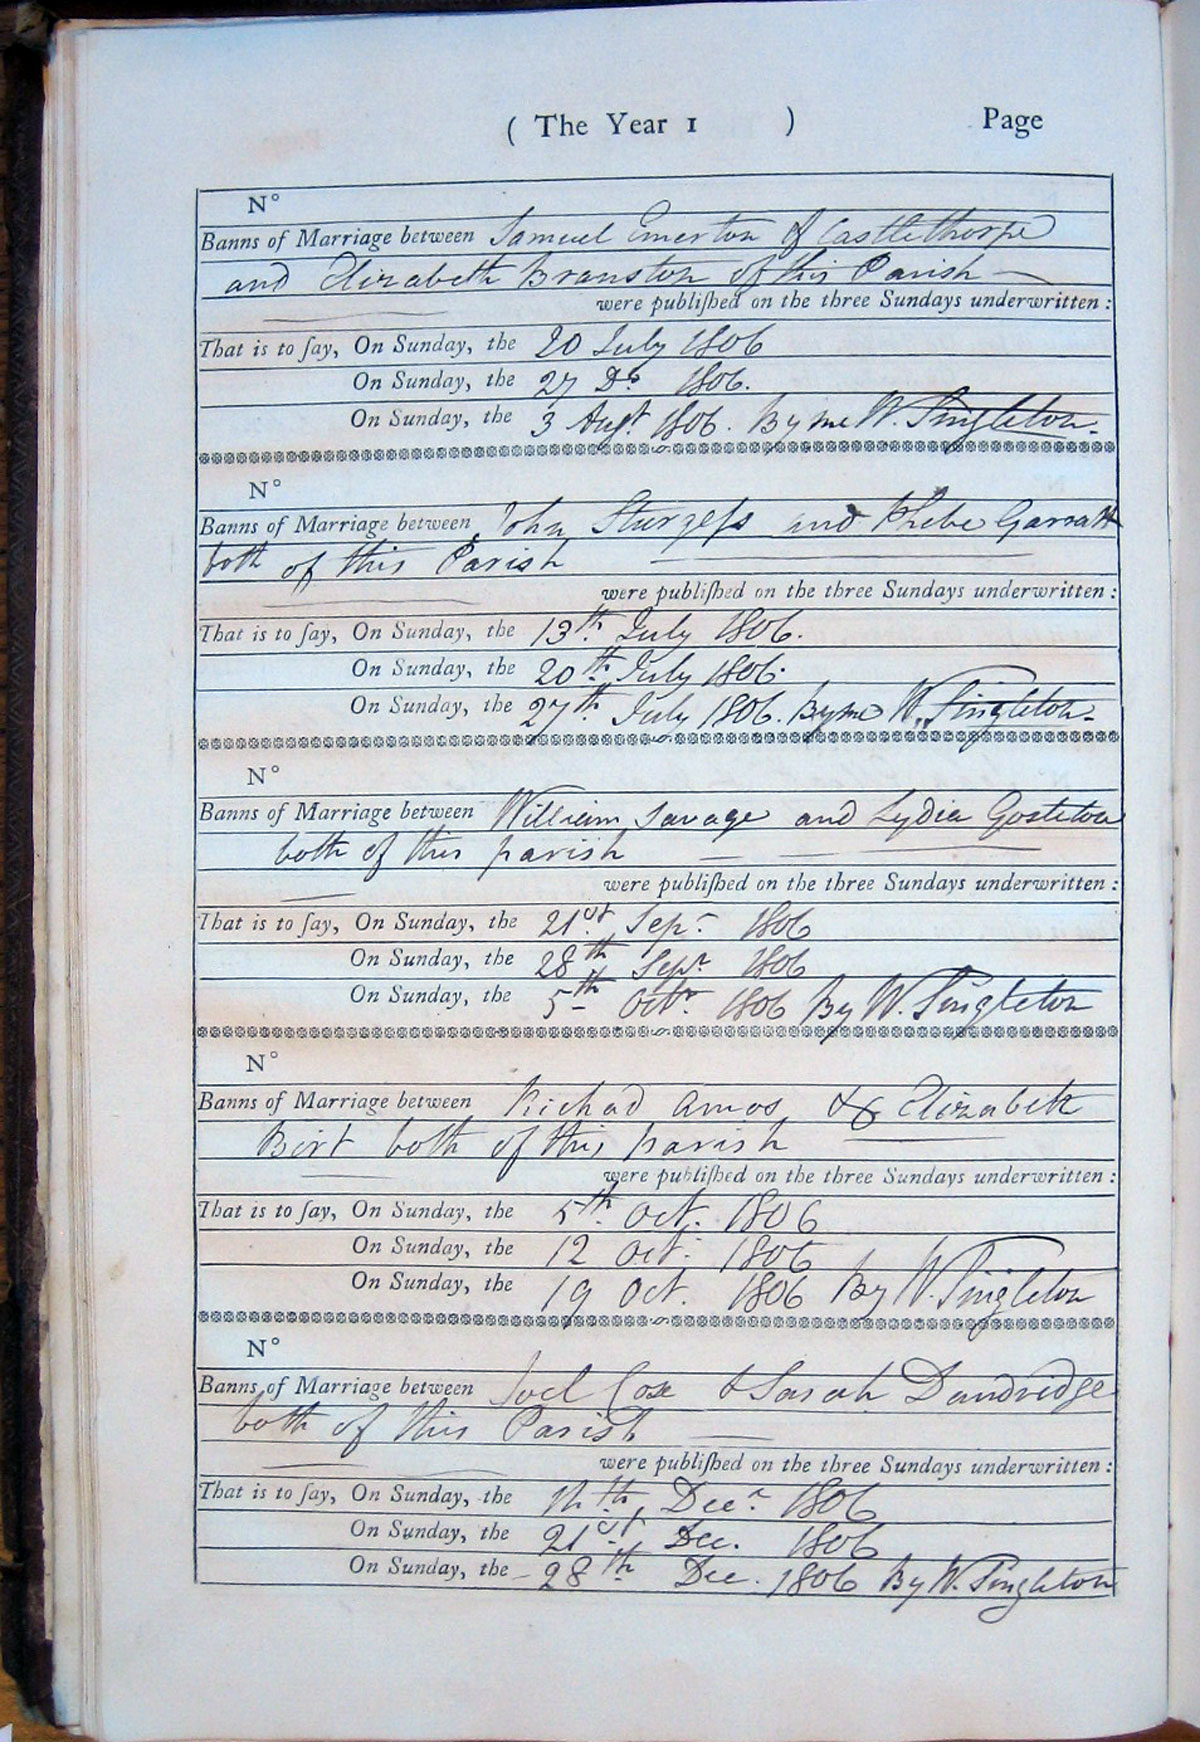 ( The Year 1 ) Page
N°
Banns of Marriage between Samuel Emerton of Castlethorpe
and Elizabeth Branston of this Parish
were publiſhed on the three Sundays underwritten :
That is to ſay, On Sunday, the 20 July 1806
On Sunday, the 27 Do 1806.
On Sunday, the 3 Augt 1806. By me W. Singleton.
N°
Banns of Marriage between John Sturgeſs and Phebe Garratt
both of this Parish
were publiſhed on the three Sundays underwritten :
That is to ſay, On Sunday, the 13th July 1806.
On Sunday, the 20th July 1806.
On Sunday, the 27th July 1806. By me W. Singleton.
N°
Banns of Marriage between William Savage and Lydia
both of this parish
were publiſhed on the three Sundays underwritten :
That is to ſay, On Sunday, the 21st Sepr 1806
On Sunday, the 28th Sepr 1806
On Sunday, the 5th Octr 1806 By W. Singleton
N°
Banns of Marriage between Richad Amos & Elizabeth
Birt both of this parish
were publiſhed on the three Sundays underwritten :
That is to ſay, On Sunday, the 5th Oct. 1806
On Sunday, the 12 Oct. 1806
On Sunday, the 19 Oct. 1806 By W. Singleton
N°
Banns of Marriage between Joel Cox & Sarah Dandridge
both of this Parish
were publiſhed on the three Sundays underwritten :
That is to ſay, On Sunday, the Decr 1806
On Sunday, the 21st Dec. 1806
On Sunday, the 28th Dec. 1806 By W. Singleton